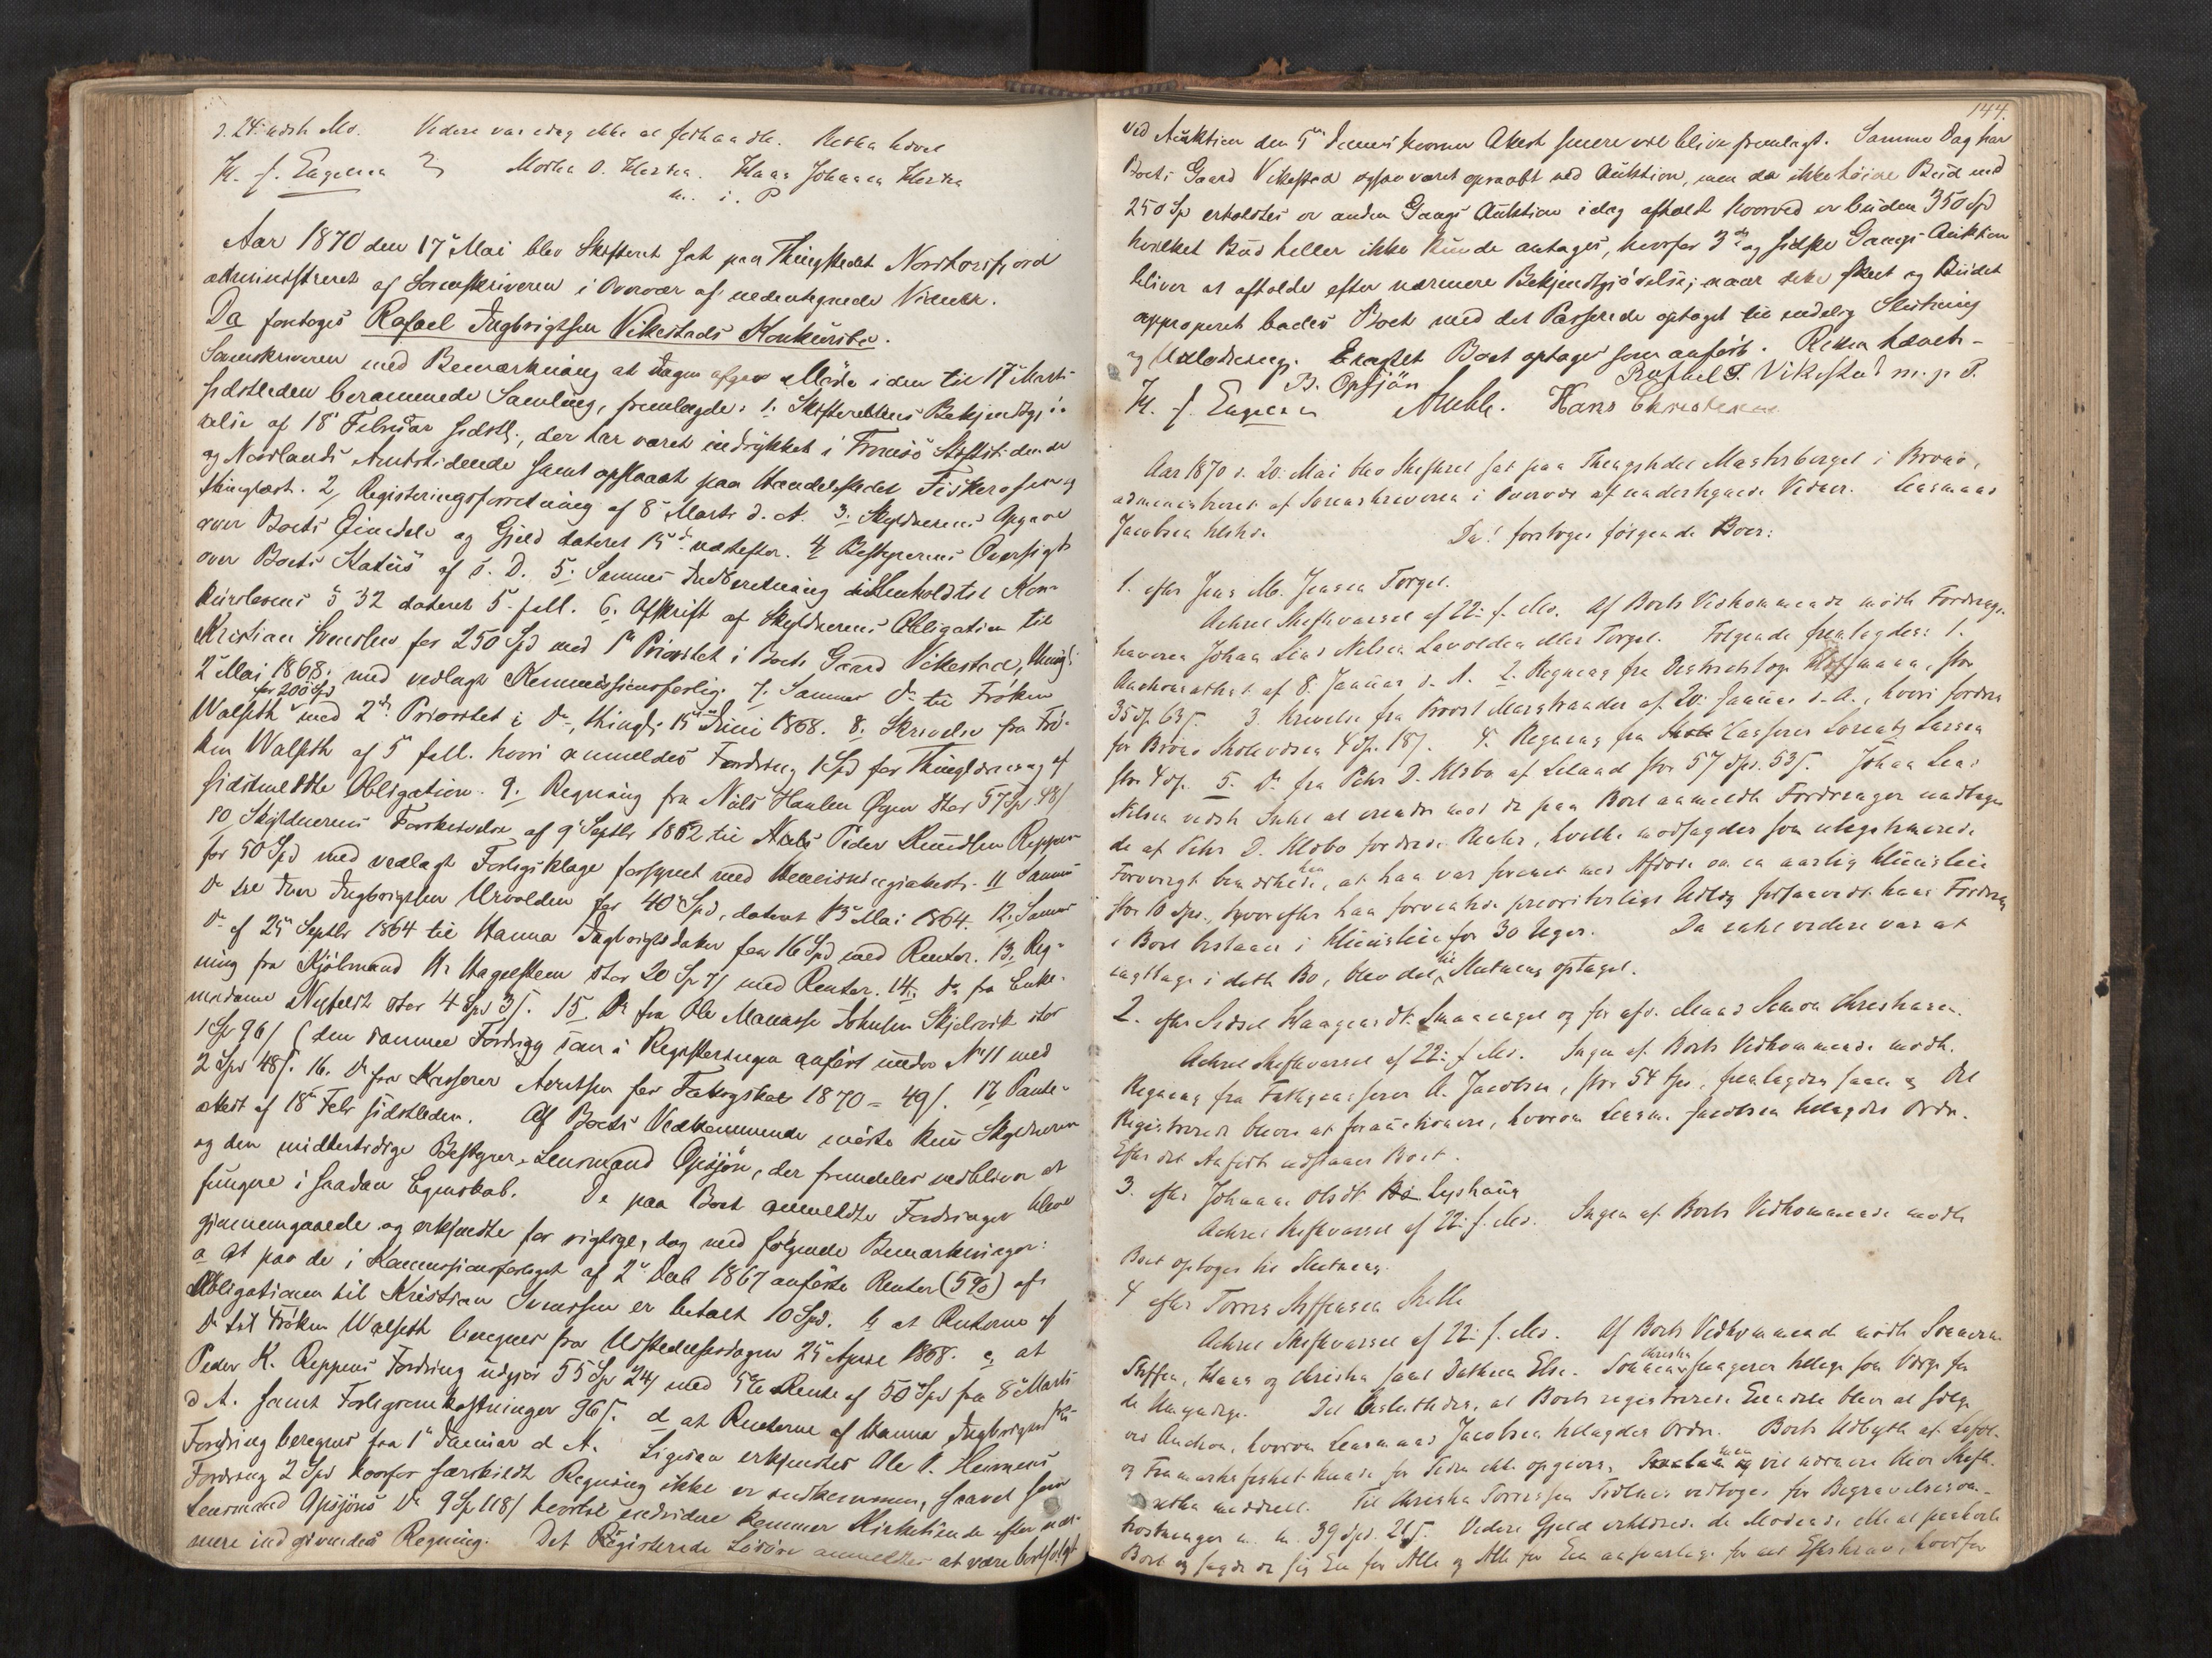 d. 24. næste Md. Videre var idag ikke at forhandle. Retten hævet
H. J. Engelsen Morten O. Horsen. Hans Johansen Horsen
m. i. P
Aar 1870 den 17de Mai blev Skifteret sat paa Thingstedet Nordhorsfjord
administreret af Sorenskriveren i Overvær af undertegnede Vidner.
Da foretoges Rafael Ingbrigtsen Vikestads Konkursbo.
Sorenskriveren med Bemærkning at Ingen afgav Møde i den til 17de Marts
sidstleden berammede Samling, fremlagde: 1. Skifterettens Bekjendtgjø-
relse af 18 Februar sidstl., der har været indrykket i Tromsø Stiftstidende
og Nordlands Amtstidende samt opslaaet paa Handelsstedet Fiskerosen og
thinglæst. 2, Registeringsforretning af 8de Marts d. A. 3. Skyldnerens Opgave
over Boets Eiendele og Gjæld dateret 15de næstefter. 4, Bestyrerens Oversigt
over Boets Status af s. D. 5. Sammes Indberetning i Henhold til Kon-
kurslovens § 32 dateret 5. ffll. 6. Afskrift af Skyldnerens Obligation til
Kristian Svendsen for 250 Spd med 1ste Prioritet i Boets Gaard Vikestad, thingl.
2 Mai 1868. med vedlagt Kommissionsforlig. 7. Sammes do til Frøken
for 200 Spd
Walseth med 2den Prioritet i do, thingl. 15de Juni 1868. 8. Skrivelse fra Frø-
ken Walseth af 5te ffll. hvori anmeldes Fordring 1 Spd for Thinglæsning af
sidstmeldte Obligation. 9. Regning fra Nils Hansen Øyen stor 57 Sp 48 s
10, Skyldnerens Forskrivelse af 9de Septbr 1862 til Niels Peder Knudsen Reppen
for 50 Spd med vedlagt Forligsklage forsynet med Henvisningsattest. 11 Sammes
do til Iver Ingbrigtsen Urvolden for 40 Spd, dateret 13de Mai 1864. 12. Sammes
do af 25de Septbr 1864 til Hanna Ingbrigtsdatter for 16 Spd med Renter. 13. Reg-
ning fra Kjøbmand H. Hagelsteen stor 20 Sp 7 s med Renter. 14. do fra Enke-
madame Nyfeldt stor 4 Spd 3 s. 15. do fra Ole Manasse Johnsen Skjelsvik stor
1 Sp 96 s (den samme Fordring som i Registeringen anført under No 11 med
2 Spd 48 s. 16. do fra Kasserer Arntsen for Fattigskat 1870 = 49 s. 17 Pante-
attest af 18de Febr sidstleden. Af Boets Vedkommende mødte kun Skyldneren
og den midlertidige Bestyrer, Lensmand Opsjøn, der fremdeles vedbliver at
fungere i saadan Egenskab. De paa Boet anmeldte Fordringer blev
gjennemgaaede og erkjendte for rigtige, dog med følgende Bemærkninger:
a at paa de i Kommissionsforliget af 2de Decb 1867 anførte Renter (5%) af
Obligationen til Kristian Svendsen er betalt 10 Spd. b, at Renterne af
do til Frøken Walseth beregnes fra Udstedelsesdagen 25de April 1868. c, at
Peder K. Reppens Fordring udgjør 55 Sp 24 s med 5% Rente af 50 Spd fra 8de Marts
d. A. samt Forligsomkostninger 96 s. d, at Renterne af Hanna Ingbrigtsd
Fordring beregnes fra 1ste Januar d A. Ligesaa erkjendtes Ole A. Hermens
Fordring 2 Spd hvorfor særskildt Regning ikke er indkommen, saavel som
Lensmand Opsjøns do 9 Sp 118 s hvortil endvidere kommer Kirketiende efter nær-
mere indgivendes Regning. Det Registerede Løsøre anmeldtes at være bortsolgt
144.
ved Auktion den 5te dennes hvorom Akest senere vil blive fremlagt. Samme Dag har
Boets Gaard Vikestad ogsaa været opraabt ved Auktion, men da ikke høiere Bud end
250 Sp erholdtes er anden Gangs Auktion idag afholdt hvorved er buden 350 Spd
hvilket Bud heller ikke kunde antages, hvorfor 3die og sidste Gangs Auktion
bliver at afholde efter nærmere Bekjendtgjørelse; naar dette skeet og Budet
approperet lades Boet med det Passerede optaget til endelig Slutning
og Udlodning. Eragtet Boet optages som anført. Retten hævet-
H. J. Engelsen B. Opsjøn Rafael I. Vikestad m. p. P.
Hans Christensen
Aar 1870 d. 20. Mai blev Skifteret sat paa Thingstedet Mastersberget i Brønø,
administreret af Sorenskriveren i Overvær af undertegnede Vidner. Lensmand
Jacobsen tilstede. Da! foretoges følgende Boer:
1. efter Jens M. Jensen Torget.
Achtes Skiftevarsel af 22. f. Md. Af Boets Vedkommende mødte Fordrings-
haveren Johan Lind Nilsen Lavolden eller Torget. Følgende fremlagdes: 1.
Auctionsattest af 8. Januar d. A. 2. Regning fra Districtslæge Hoffmann, stor
35 s. 3. Skrivelse fra Provst Marstrander af 20. Januar d. A., hvori fordres
for Brønø Skolevæsen 4 Sp. 18 s. 4. Regning fra Kasserer Lorentz Larsen
stor 4 Sp. 5. do fra Peter D. Klebo af Leland stor 57 Spd. 53 s. Johan Lind
Nilsen vidste Intet at erindre mod de paa Boet anmeldte Fordringer undtagen
de af Peter D. Klebo fordrede Renter, hvilke modsagdes som ulegitimerede
Forøvrigt bemærkede han, at han var forenet med Afdøde om en aarlig Huusleie
stor 10 Spd., hvorefter han formente prioriterligt Udlæg forsaavidt hans Fordring
i Boet bestaaer i Huusleie for 30 Uger. Da intet videre var at
iagttage i dette Bo, blev det til Slutning optaget.
2. efter Sidsel Haagensdt. Smaavaget og før afd. Mand Simon Christiansen.
Achtes Skiftevarsel af 22. f. Md. Ingen af Boets Vedkommende mødte.
Regning fra Fattigkasserer A. Jacobsen, stor 54 Spd, fremlagdes saa og Det
Registrerede blev at forauctionere, hvorom Lensm. Jacobsen tillagdes Ordre.
Efter det Anførte udstaaer Boet.
3. efter Johanna Olsdt. Lyshaug
Achtes Skiftevarsel af 22. f. Md. Ingen af Boets Vedkommende mødte
Boet optoges til Slutning.
4 efter Torris Steffensen Stelle
Achtes Skiftevarsel af 22. f. Md. Af Boets Vedkommende mødte Sønnerne
Steffen, Hans og Christen samt Datteren Else. Sønnen Christen fungerer tillige som Værge for
de Umyndige. Det besluttedes, at Boets registrerede Eiendele blev at sælge
ved Auction, hvorom Lensmand Jacobsen tillagdes Ordre. Boets Udbytte af Lofot-
og Finmarksfisket kunde for Tiden ikke opgives, men vil nærmere blive Skifte-
retten meddeelt. Til Christen Torrissen vedtoges for Begravelsesom-
kostninger m. m. 39 Spd. 21 s. Videre Gjeld erklærede de Mødende ikke at paahvile
Boet og sagde de sig Een for Alle og Alle for Een ansvarlige for alt Efterkrav, hvorfor